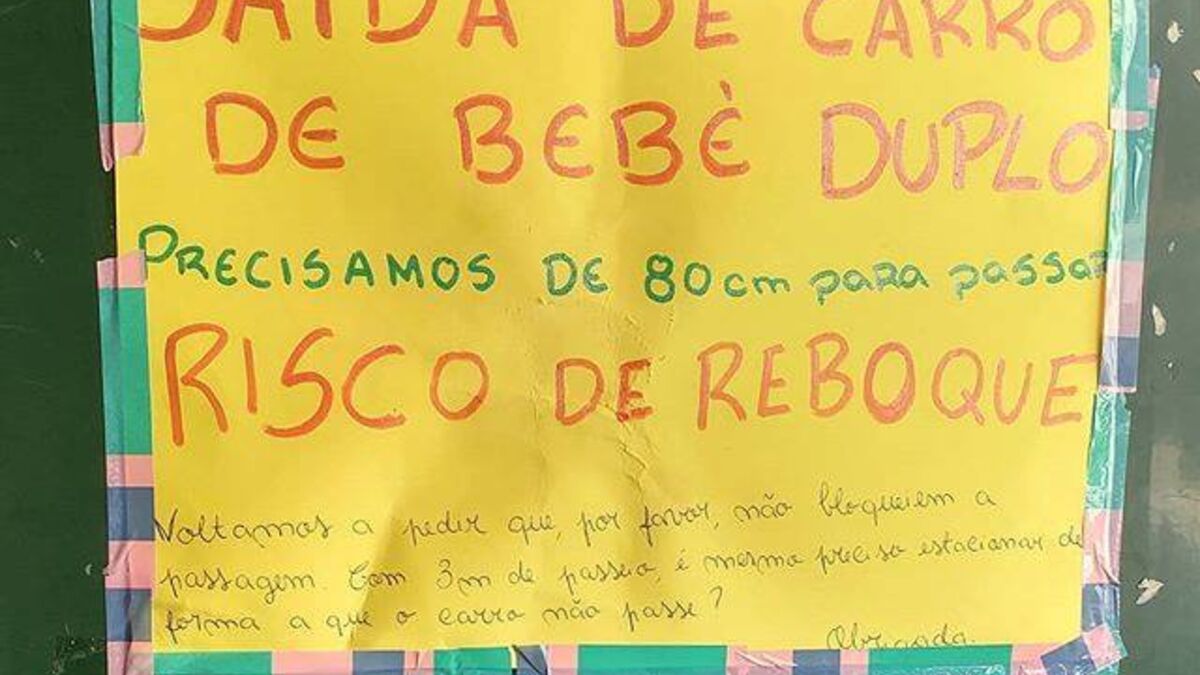 SAÍDA DE CARRO
DE BEBÈ DUPLO
PRECISAMOS DE 80cm para passar
RISCO DE REBOQUE
Voltamos a pedir que, por favor, não bloqueiem a
passagem. Com 3m de passeio, é mesmo preciso estacionar de
forma a que o carro não passe?
Obrigada.